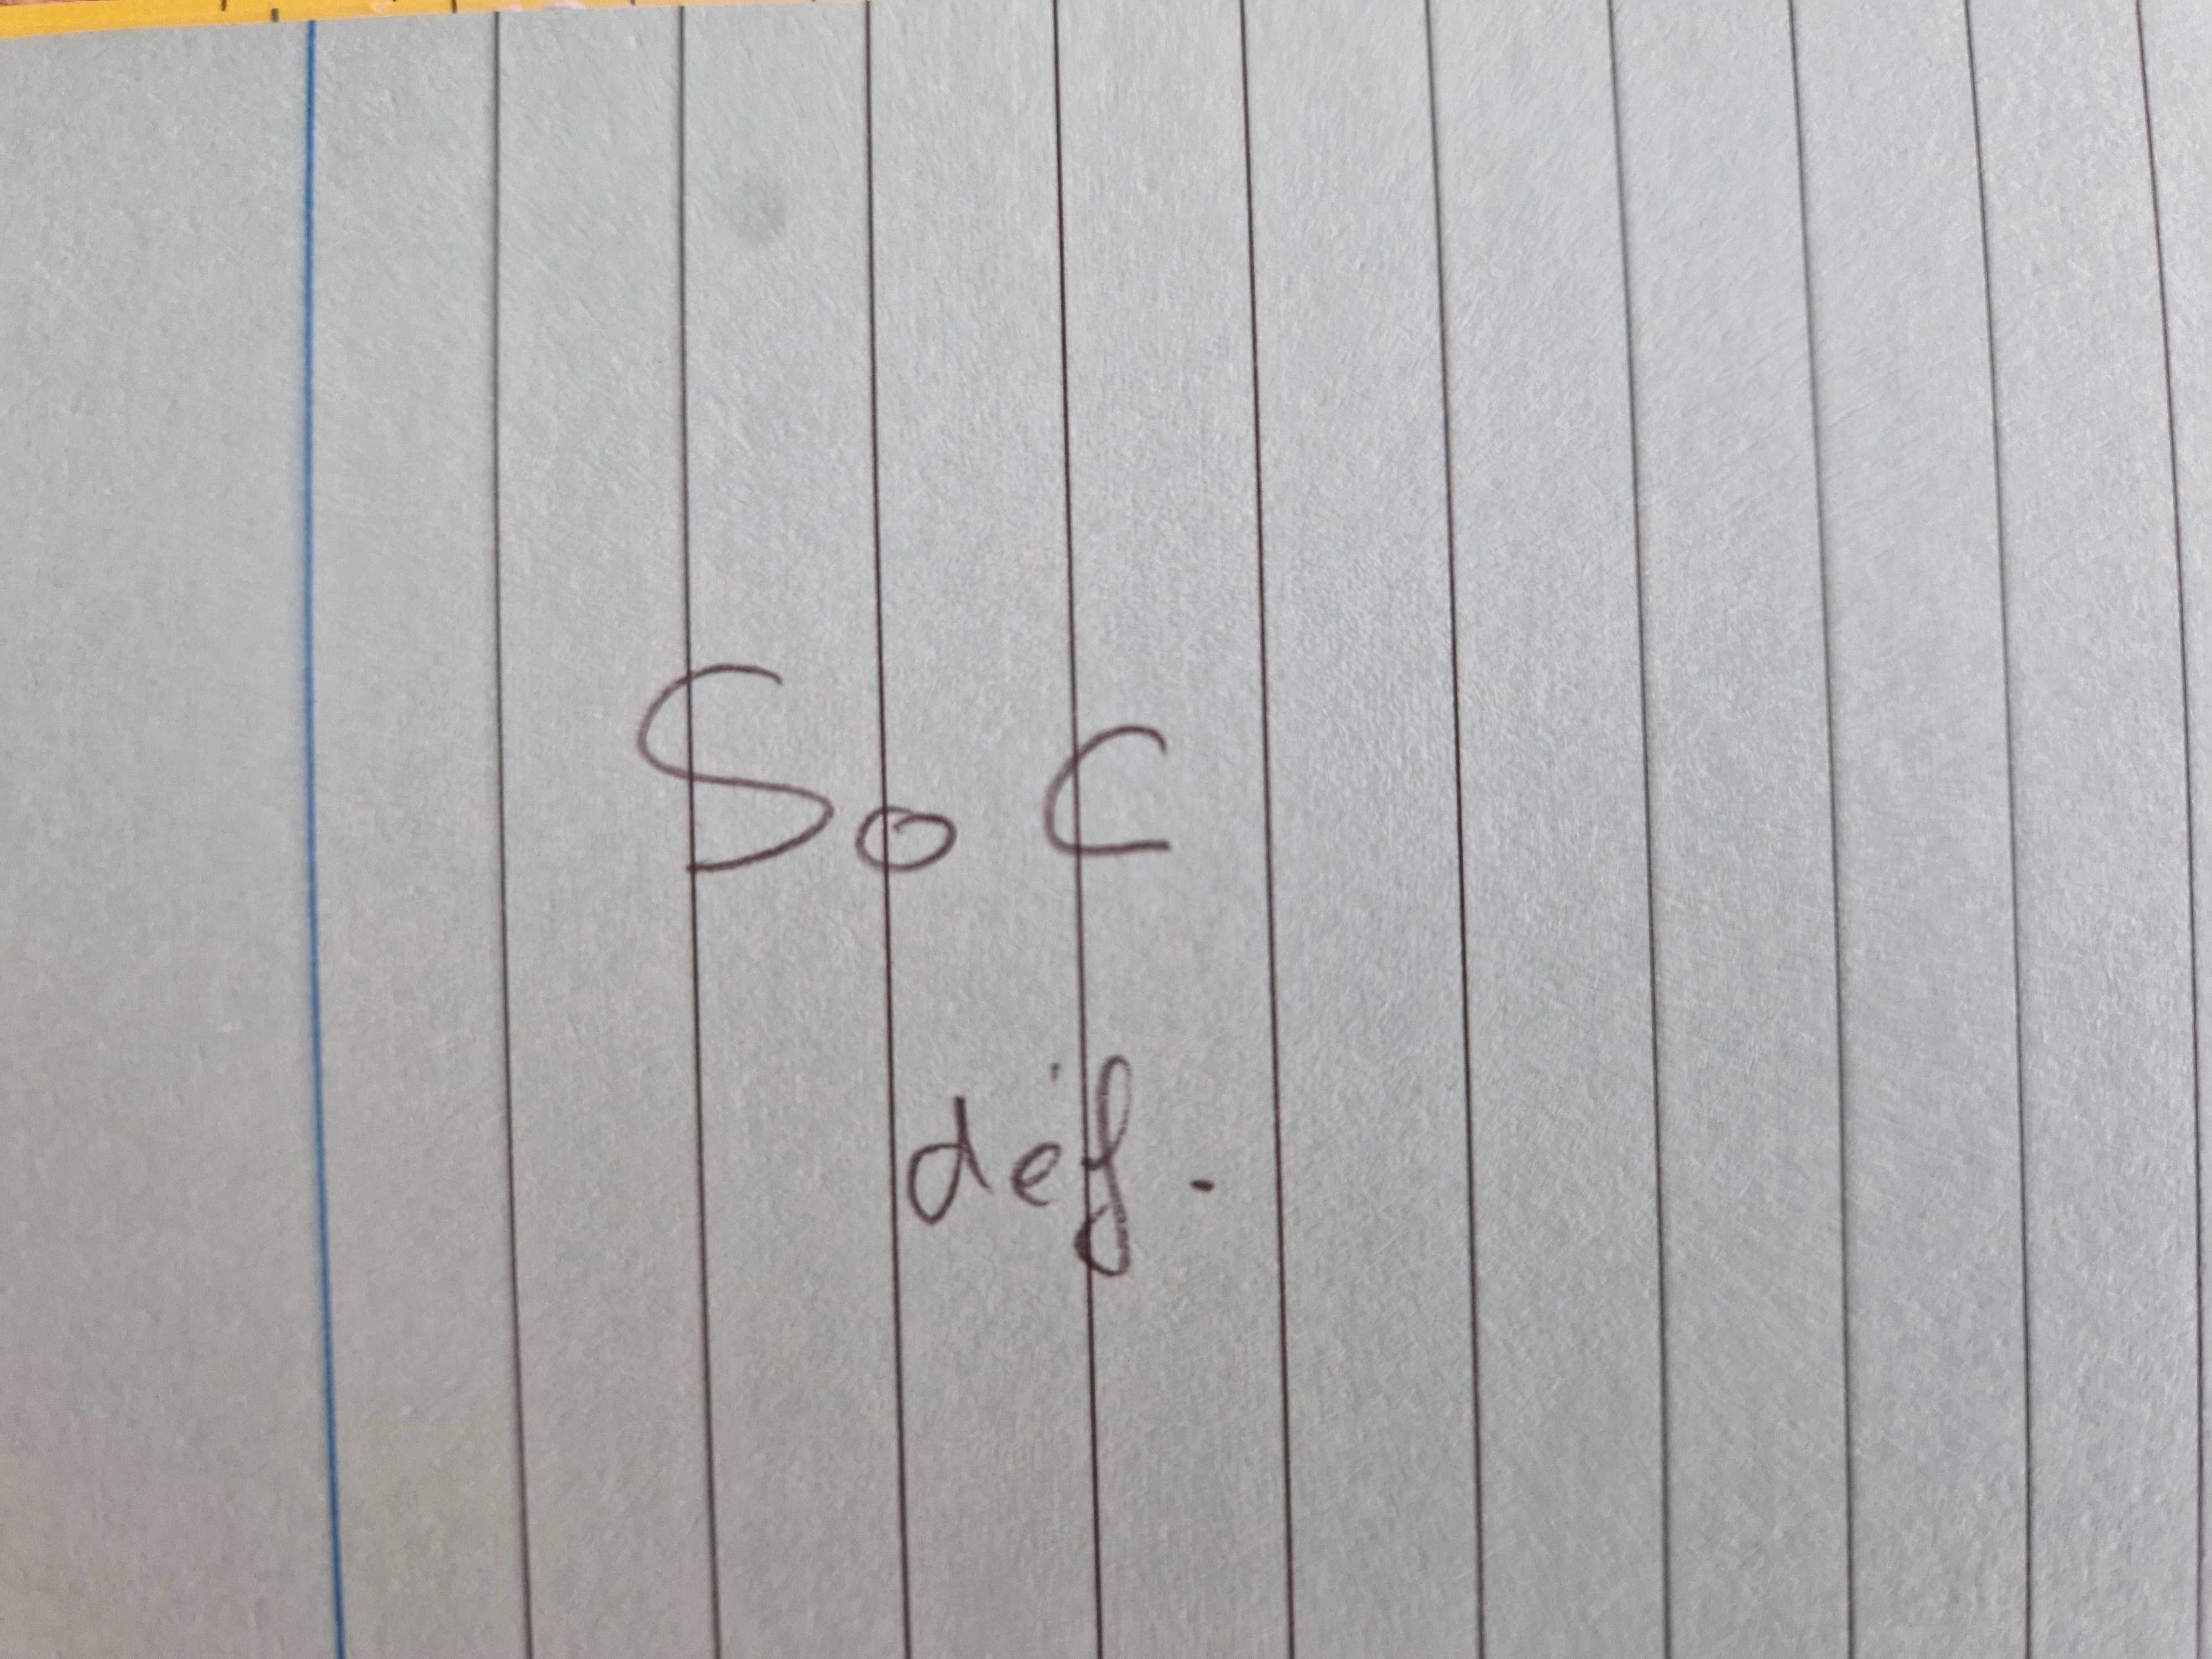 SoC
déf.